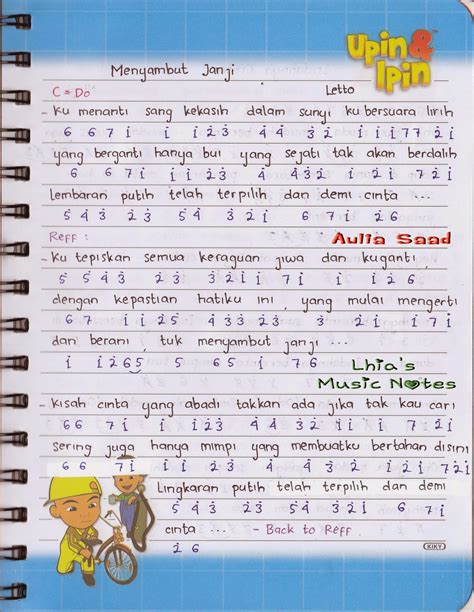 Upin & Ipin
Menyambut Janji
C = Do
Letto
- Ku menanti sang kekasih dalam sunyi ku bersuara lirih
6 6 7 i i i 2 3 4 4 3 2 i i i 7 7 2 i
yang berganti hanya bui yang sejati tak akan berdalih
6 6 7 i i 2 3 4 4 3 2 i 2 i 7 2 i
Lembaran putih telah terpilih dan demi cinta ...
5 4 3 2 3 5 4 3 2 i i 2 6
Reff :
Aulia Saad
- Ku tepiskan semua keraguan jiwa dan kuganti
5 5 4 3 2 3 3 2 i 2 i 7 i i i 2 6
dengan kepastian hatiku ini , yang mulai mengerti
6 7 i i 2 5 4 3 3 2 i i i 2 i 7 i
dan berani , tuk menyambut janji ...
i i 2 6 5 5 6 5 i i 7 6
Lhia's
Music Notes
- Kisah cinta yang abadi takkan ada jika tak kau cari
6 6 7 i i i 2 3 4 4 3 2 i i i 7 i 2 i
sering juga hanya mimpi yang membuatku bertahan disini
6 6 7 i i i 2 3 4 4 3 2 i 2 i 7 2 i
Lingkaran putih telah terpilih dan demi
5 4 3 2 3 5 4 3 2 i i
cinta ... - Back to Reff
2 6
KIKY